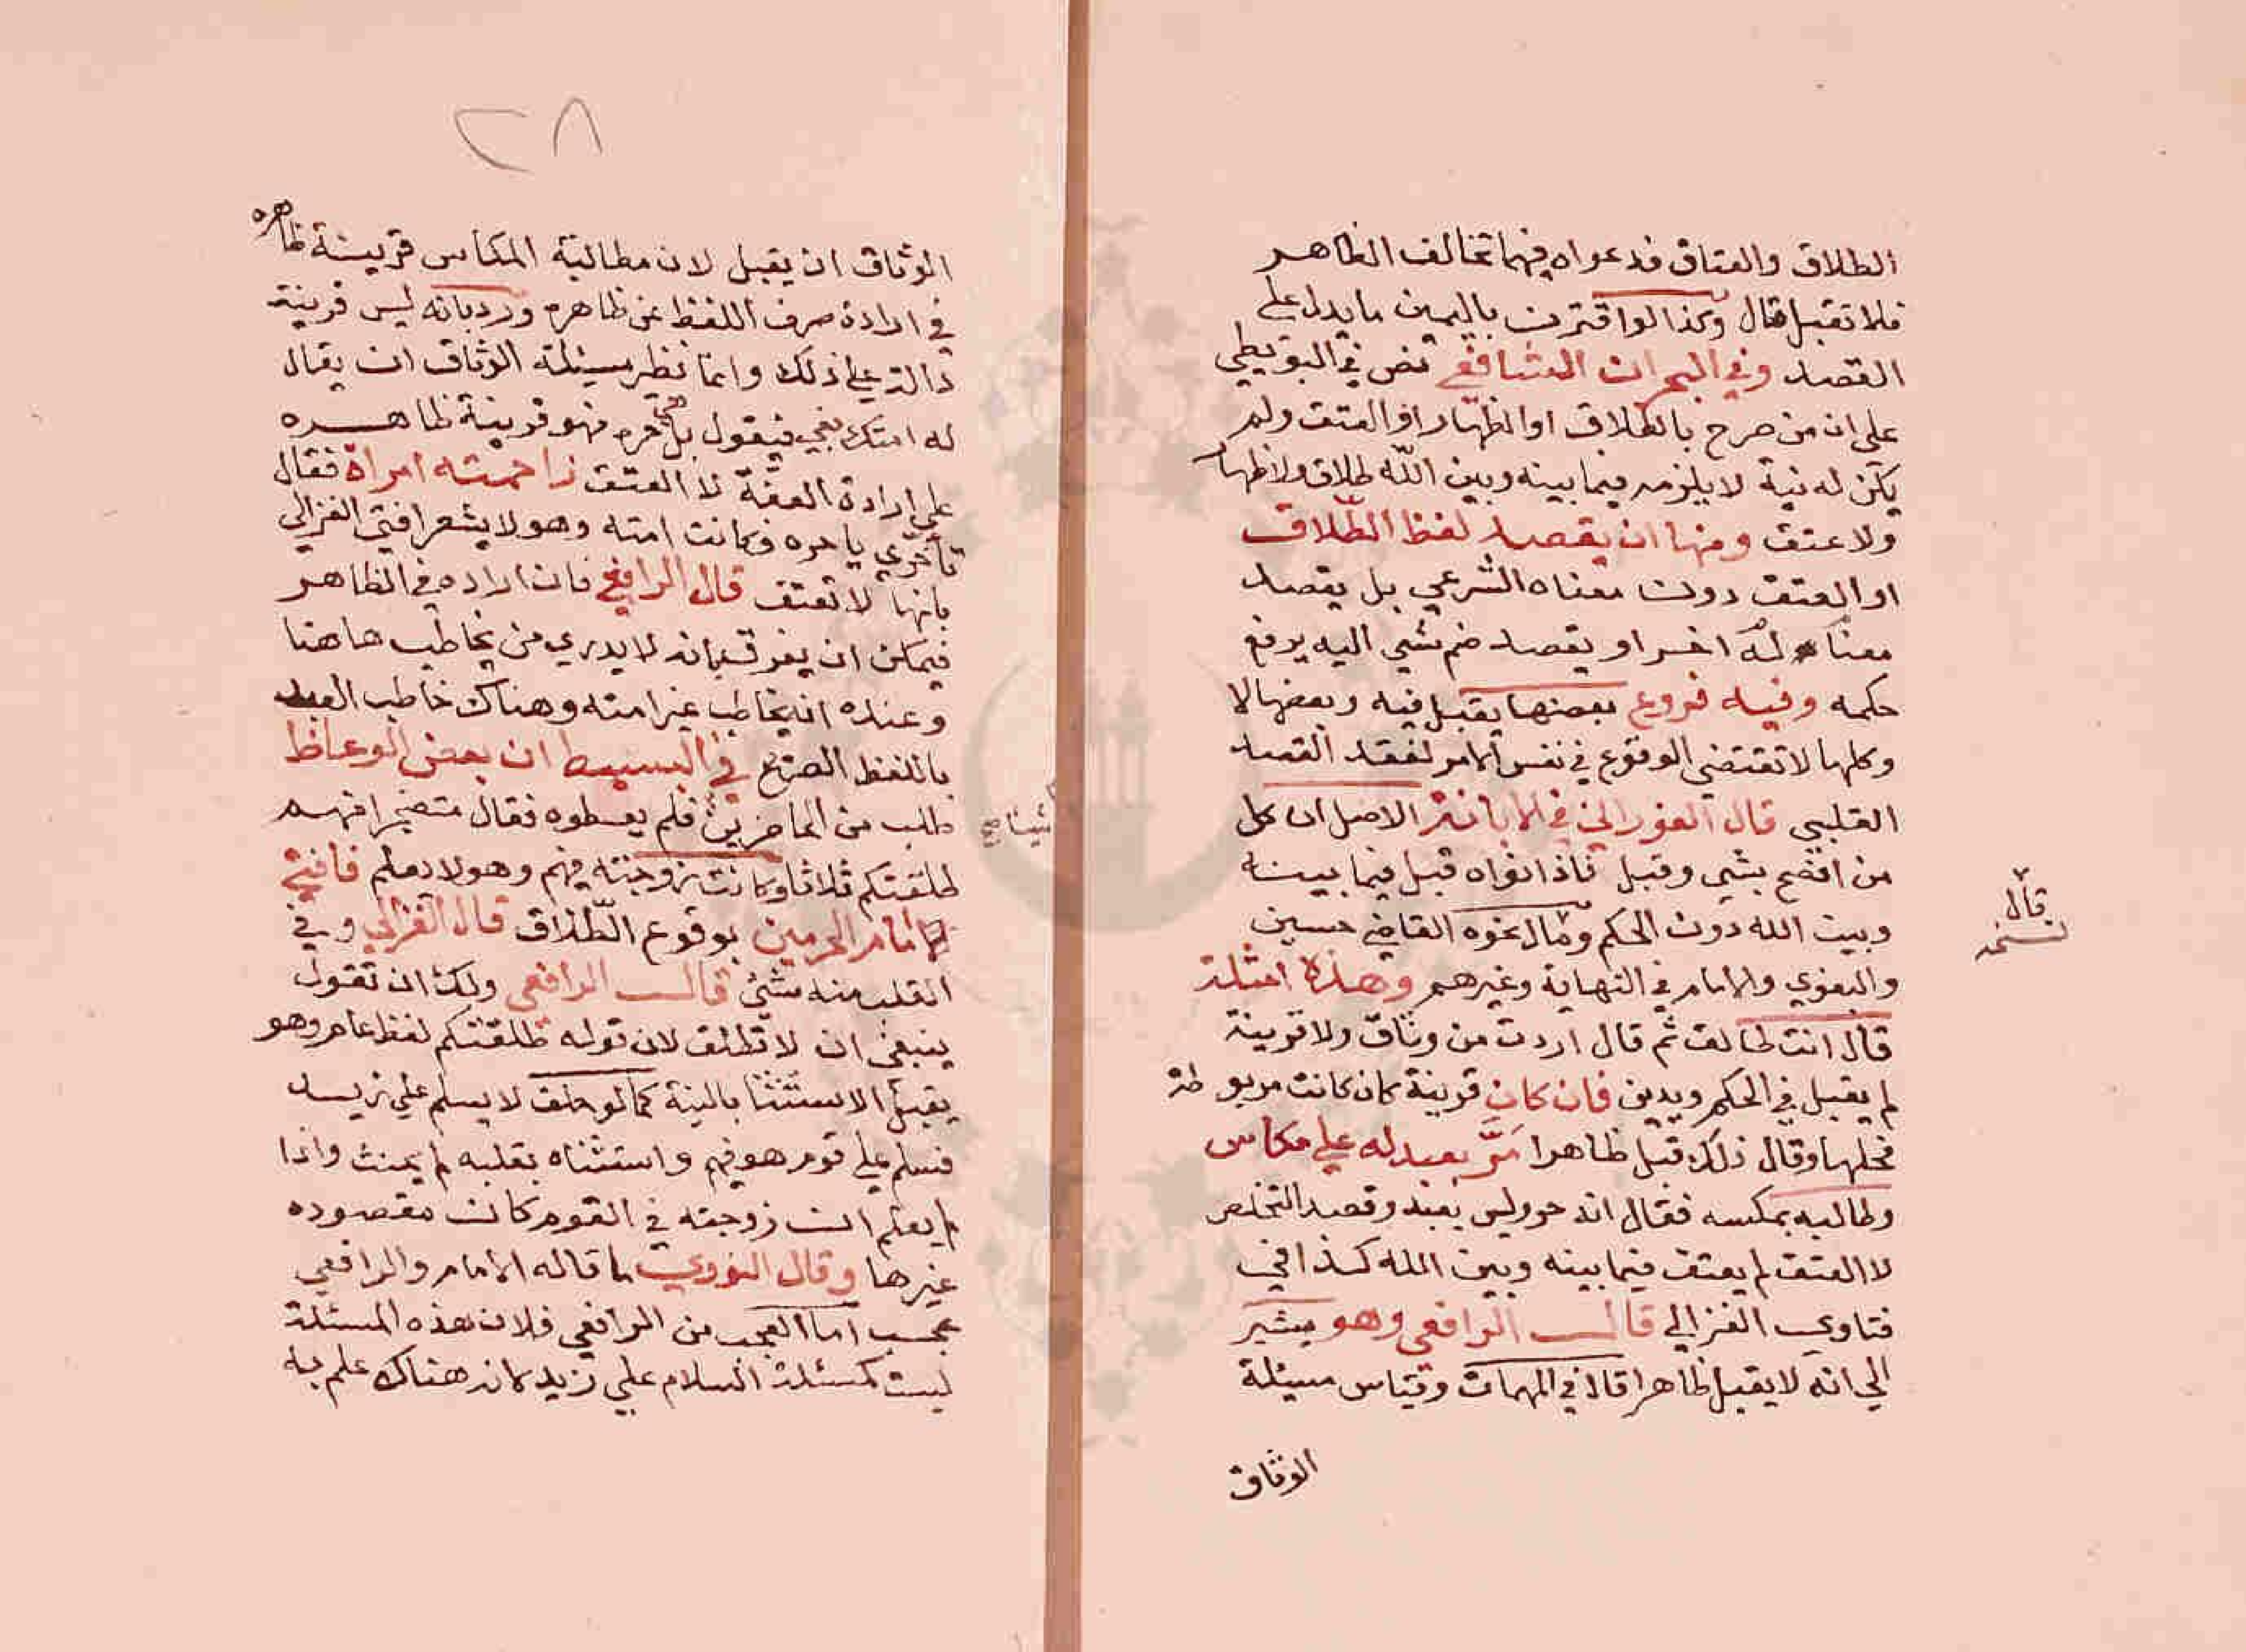 الطلاق والعتاق فدعواه فيهما تخالف الظاهر
فلا تقبل قال وكذا لو اقترن باليمين ما يدل على
القصد وفي البحر ان الشافعي نص في البويطي
على ان من صرح بالطلاق او الظهار او العتق ولم
يكن له نية لا يلزمه فيما بينه وبين الله طلاق ولا ظهار
ولا عتق ومنها ان يقصد لفظ الطلاق
او العتق دون معناه الشرعي بل يقصد
معنا له اخر او يقصد ضم شي اليه يرفع
حكمه وفيه فروع بعضها يقبل فيه وبعضها لا
وكلها لا تقتضي الوقوع في نفس الامر لفقد القصد
القلبي قال الفوراني في الابانة الاصل ان كل
من افصح بشي وقبل فاذا نواه قبل فيما بينه
وبين الله دون الحكم وقال نحوه القاضي حسين
والبغوي والامام في النهاية وغيرهم وهذه امثلة
قال انت طالق ثم قال اردت من وثاق ولا قرينة
لم يقبل في الحكم ويدين فان كان قرينة كان كانت مربوطة
فحلها وقال ذلك قبل ظاهرا مر بعبد له على مكاس
وطالبه بمكسه فقال انه حر وليس بعبد وقصد التخلص
لا العتق لم يعتق فيما بينه وبين الله كذا في
فتاوي الغزالي قال الرافعي وهو يشير
الى انه لا يقبل ظاهرا قال في المهمات وقياس مسيلة
الوثاق
قال
نسخه
٢٨
الوثاق ان يقبل لان مطالبة المكاس قرينة ظاهره
في ارادة صرف اللفظ عن ظاهره ورد بانه ليس قرينة
دالة على ذلك وانما نظر مسيلة الوثاق ان يقال
له امتك بغي فيقول بل هي حره فهو قرينة ظاهره
على ارادة العفة لا العتق زاحمته امراة فقال
تأخري يا حره فكانت امته وهو لا يشعر افتى الغزالي
بانها لا تعتق قال الرافعي فان اراده في الظاهر
فيمكن ان يفرق بانه لا يدري من يخاطب هاهنا
وعنده انه يخاطب غير امته وهناك خاطب العبد
باللفظ الصريح في البسيط ان بعض الوعاظ
طلب من الحاضرين فلم يعطوه فقال متضجرا منهم
شيا صح
طلقتكم ثلاثا وكانت زوجته فيهم وهو لا يعلم فافتى
امام الحرمين بوقوع الطلاق قال الغزالي وفي
القلب منه شئ قال الرافعي ولك ان تقول
ينبغي ان لا تطلق لان قوله طلقتكم لفظ عام وهو
يقبل الاستثنا بالنية كما لو حلف لا يسلم على زيد
فسلم على قوم هو فيهم واستثناه بقلبه لم يحنث واذا
لم يعلم ان زوجته في القوم كان مقصوده
غيرها وقال النووي ما قاله الامام والرافعي
عجب اما العجب من الرافعي فلان هذه المسئلة
ليست كمسئلة السلام على زيد لانه هناك علم به